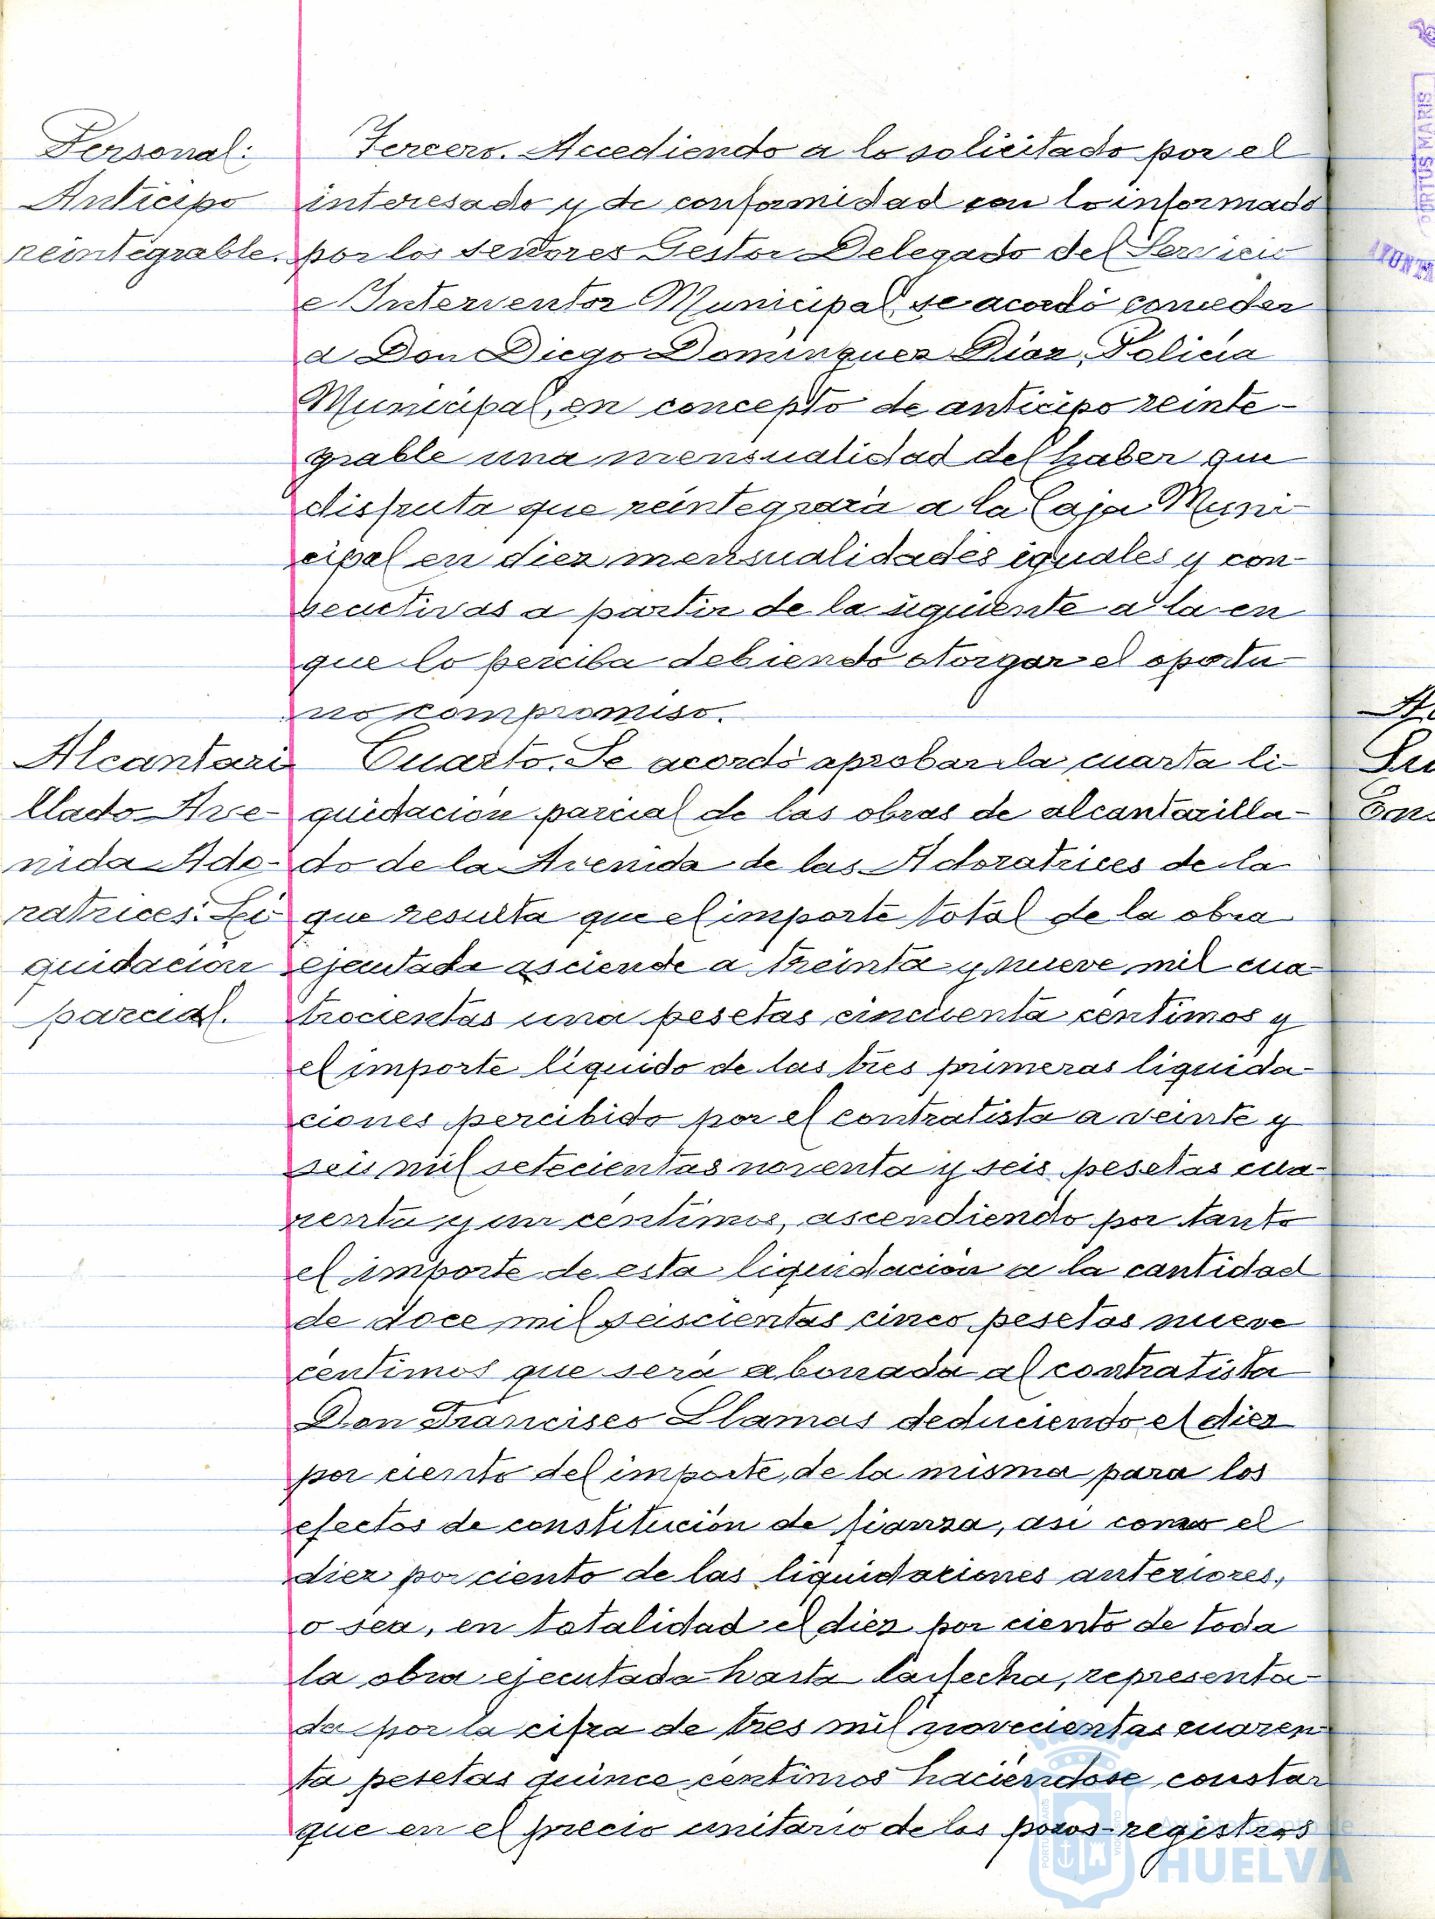 Personal:
Anticipo
reintegrable.
Tercero. Accediendo a lo solicitado por el
interesado y de conformidad con lo informado
por los señores Gestor Delegado del Servicio
e Interventor Municipal, se acordó conceder
a Don Diego Domínguez Díaz, Policía
Municipal, en concepto de anticipo reinte-
grable una mensualidad del haber que
disfruta que reintegrará a la Caja Muni-
cipal en diez mensualidades iguales y con-
secutivas a partir de la siguiente a la en
que lo perciba debiendo otorgar el oportu-
no compromiso.
Alcantari
llado Ave-
nida Ado-
ratrices: Li-
quidación
parcial.
Cuarto. Se acordó aprobar la cuarta li-
quidación parcial de las obras de alcantarilla-
do de la Avenida de las Adoratrices de la
que resulta que el importe total de la obra
ejecutada asciende a treinta y nueve mil cua-
trocientas una pesetas cincuenta céntimos y
el importe líquido de las tres primeras liquida-
ciones percibido por el contratista a veinte y
seis mil setecientas noventa y seis pesetas cua-
renta y un céntimos, ascendiendo por tanto
el importe de esta liquidación a la cantidad
de doce mil seiscientas cinco pesetas nueve
céntimos que será abonada al contratista
Don Francisco Llamas deduciendo el diez
por ciento del importe de la misma para los
efectos de constitución de fianza, así como el
diez por ciento de las liquidaciones anteriores,
o sea, en totalidad el diez por ciento de toda
la obra ejecutada hasta la fecha, representa-
da por la cifra de tres mil novecientas cuaren-
ta pesetas quince céntimos haciéndose constar
que en el precio unitario de los pozos-registros
PORTUS MARIS
AYUNTA
Su
Ayuntamiento de
HUELVA